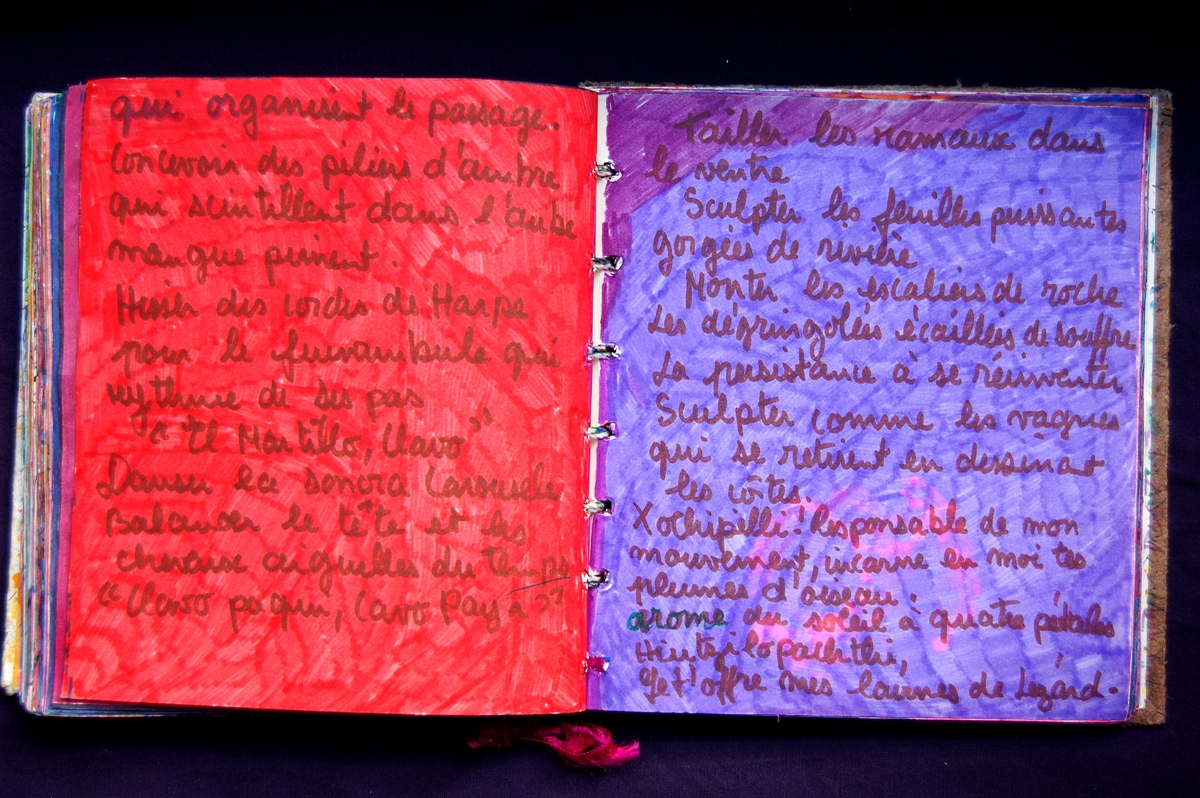 qui organisent le passage.
Concevoir des piliers d'ambre
qui scintillent dans l'aube
mangue piment.
Hisser des cordes de Harpe
pour le funambule qui
rythme de ses pas
"El Martillo, Clavo"
Danser la sonora Carouseles
Balancer le tête et les
cheveux aiguilles du temps
"Clavo
Tailler les rameaux dans
le ventre
Sculpter les feuilles puissantes
gorgées de rivière
Monter les escaliers de roche
Les dégringolés écaillées de souffre
La persistance à se réinventer
Sculpter comme les vagues
qui se retirent en dessinant
les côtes.
Xochipilli! Responsable de mon
mouvement, incarne en moi tes
plumes d'oiseau.
arome du soleil à quatre pétales
Je t'offre mes larmes de Lézard.